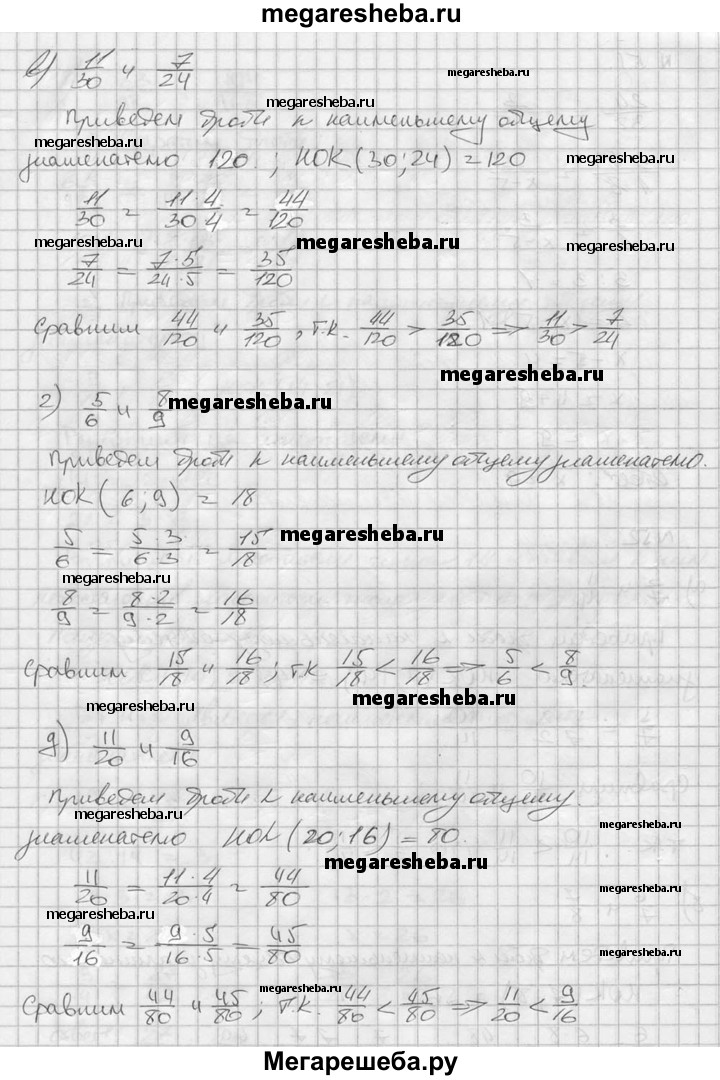 megaresheba.ru
в) 11/30 и 7/24 megaresheba.ru
megaresheba.ru
Приведем дроби к наименьшему общему
megaresheba.ru
знаменателю 120. ; НОК(30;24) = 120 megaresheba.ru
11/30 = 11·4/30·4 = 44/120
megaresheba.ru megaresheba.ru megaresheba.ru
7/24 = 7·5/24·5 = 35/120
Сравним 44/120 и 35/120, т.к. 44/120 > 35/120 => 11/30 > 7/24
megaresheba.ru
г) 5/6 и 8/9 megaresheba.ru
Приведем дроби к наименьшему общему знаменателю.
НОК(6;9) = 18
5/6 = 5·3/6·3 = 15/18 megaresheba.ru
megaresheba.ru
8/9 = 8·2/9·2 = 16/18
Сравним 15/18 и 16/18; т.к 15/18 < 16/18 => 5/6 < 8/9.
megaresheba.ru megaresheba.ru
д) 11/20 и 9/16
Приведем дроби к наименьшему общему
megaresheba.ru megaresheba.ru
знаменателю НОК(20;16) = 80.
megaresheba.ru
11/20 = 11·4/20·4 = 44/80 megaresheba.ru
megaresheba.ru
9/16 = 9·5/16·5 = 45/80 megaresheba.ru
megaresheba.ru
Сравним 44/80 и 45/80; т.к. 44/80 < 45/80 => 11/20 < 9/16
Мегарешеба.ру